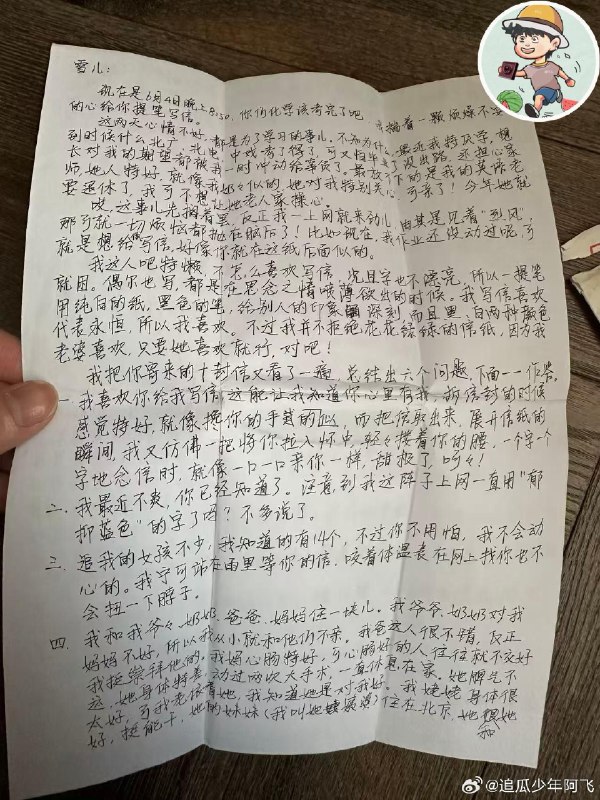 雪儿:
现在是6月4日晚上8:30,你们化学该考完了吧,我揣着一颗烦燥不安
的心给你提笔写信。
这两天心情不好,都是为了学习的事儿,不知为什么,最近我特厌学,想
到时候什么北广、北电、中戏考了得了,可又怕毕了没出路,还担心家
长对我的期望都被我一时冲动给辜负了。最放不下的是我的英语老
师,她人特好,就像我奶奶似的,她对我特别关心,可亲了!今年她就
要退休了,我可不想让她老人家操心。
哎,这事儿先搁着罢,反正我一上网就来劲儿,由其是见着“烈风”,
那可就一切烦恼都抛在脑后了!比如现在,我作业还没动过呢,可
就是想给你写信,好像你就在这纸后面似的。
我这人吧特懒,不怎么喜欢写信,况且字也不漂亮,所以一提笔
就困。偶尔也写,都是在思念之情喷薄欲出的时候。我写信喜欢
用纯白的纸,黑色的笔,给别人的印象深刻,而且黑、白两种颜色
代表永恒,所以我喜欢。不过我并不拒绝花花绿绿的信纸,因为我
老婆喜欢,只要她喜欢就行,对吧!
我把你寄来的十封信又看了一遍,总结出六个问题,下面一一作答。
一.我喜欢你给我写信,这能让我知道你心里有我,拆信封的时候
感觉特好,就像搀你的手似的,而把信取出来,展开信纸的
瞬间,我又仿佛一把将你拉入怀中,轻轻搂着你的腰,一个字一个
字地念信时,就像一口一口亲你一样,甜极了,呵呵!
二.我最近不爽,你已经知道了。注意到我这阵子上网一直用“郁
抑蓝色”的字了吗?不多说了。
三.追我的女孩不少,我知道的有14个,不过你不用怕,我不会动
心的。我宁可站在雨里等你的信,咬着体温表在网上找你也不
会扭一下脖子。
四.我和我爷爷、奶奶、爸爸、妈妈住一块儿。我爷爷、奶奶对我
妈妈不好,所以我从小就和他们不亲。我爸这人很不错,反正
我挺崇拜他的。我妈心肠特好,可心肠好的人往往就不交好
运,她身体特差,动过两次大手术,一直休息在家。她脾气不
太好,可我老依着她,我知道她是对我好。我姥姥身体很
好,挺能干,她的妹妹(我叫她姨姥姥)住在北京,她跟她
和
@追瓜少年阿飞